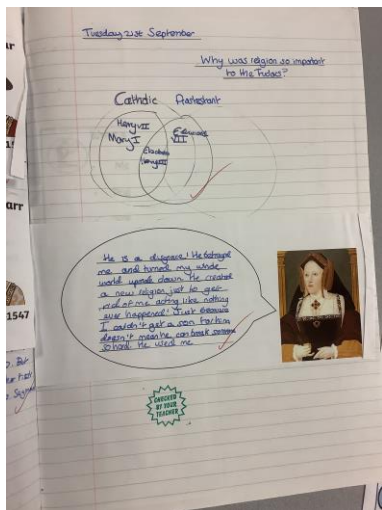 Tuesday 21st September
Why was religion so important
to the Tudors?
Catholic Protestant
Henry VII
Mary I
Edward
VII
Henry VIII
He is a disgrace! He betrayed
me and turned my whole
world upside down. He created
a new religion just to get
rid of me acting like nothing
ever happened! Just because
I couldn't get a son for him
doesn't mean he can break someone
so hard. He used me
CHECKED
BY YOUR
TEACHER
1547